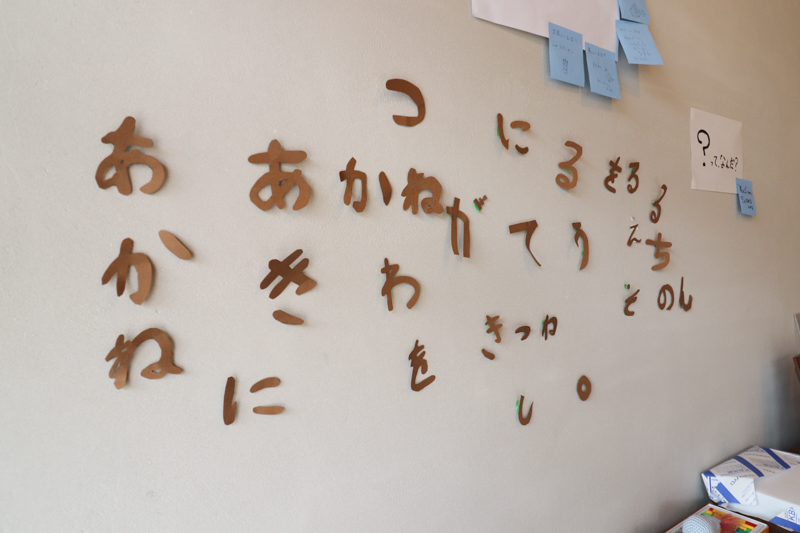 あかね
に
あき
つ
かね
わ
を
が
に
て
きつね
し
る
う
。
きる
る
え
ち
そ
のん
?って、なんだ?